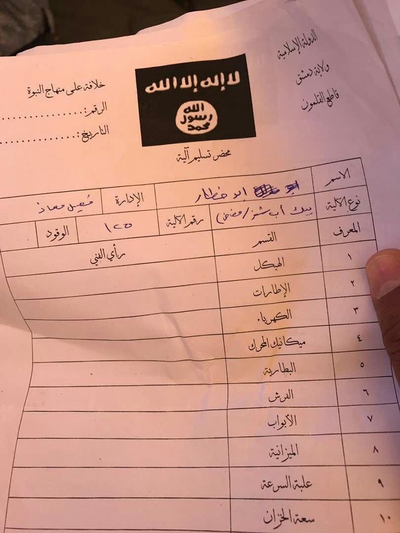 الدولة الإسلامية
ولاية دمشق
قاطع القلمون
خلافة على منهاج النبوة
الرقم:
التاريخ:
لا إله إلا الله
الله
رسول
محمد
محضر تسليم آلية
الاسم ابو خطار الإدارة
نوع الآلية بيك اب رقم الآلية ١٢٥ الوقود
المعرف القسم رأي الفني
١ الهيكل
٢ الإطارات
٣ الكهرباء
٤ ميكانيك المحرك
٥ البطارية
٦ الفرش
٧ الأبواب
٨ الميزانية
٩ علبة السرعة
١٠ سعة الخزان